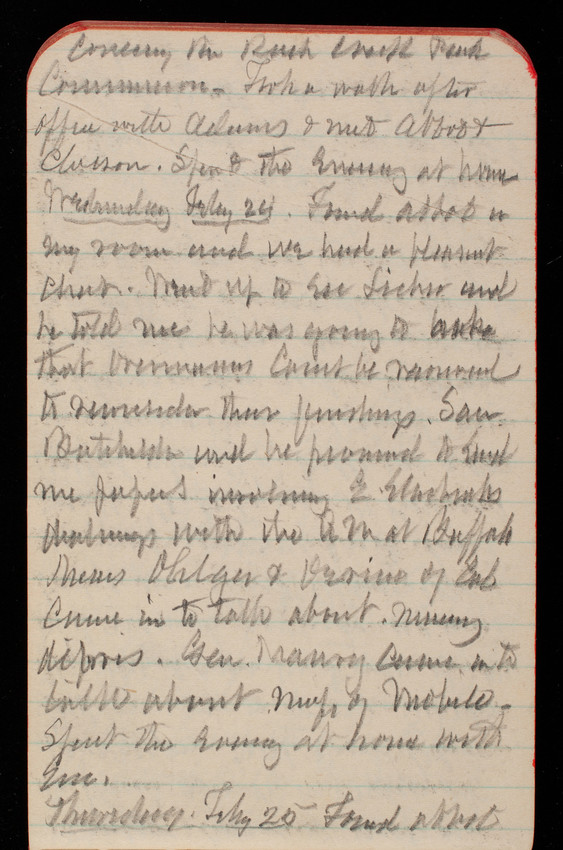 Concerning the Rock Creek Park
Commission. Took a walk after
office with Adams & met Abbot &
Closson. Spent the Evening at home
Wednesday Feby 24. Found Abbot in
my room and we had a pleasant
chat. Went up to see and
he told me he was going to
that Commission be
to reconsider their findings. Saw
Batchelder and he promised to send
me papers involving G
dealings with the at Buffalo
& of Cal
Came in to talk about mining
debris. Gen. Maury came in to
talk about Map of Mobile.
Spent the Evening at home with
Em.
Thursday. Feby 25 Found Abbot